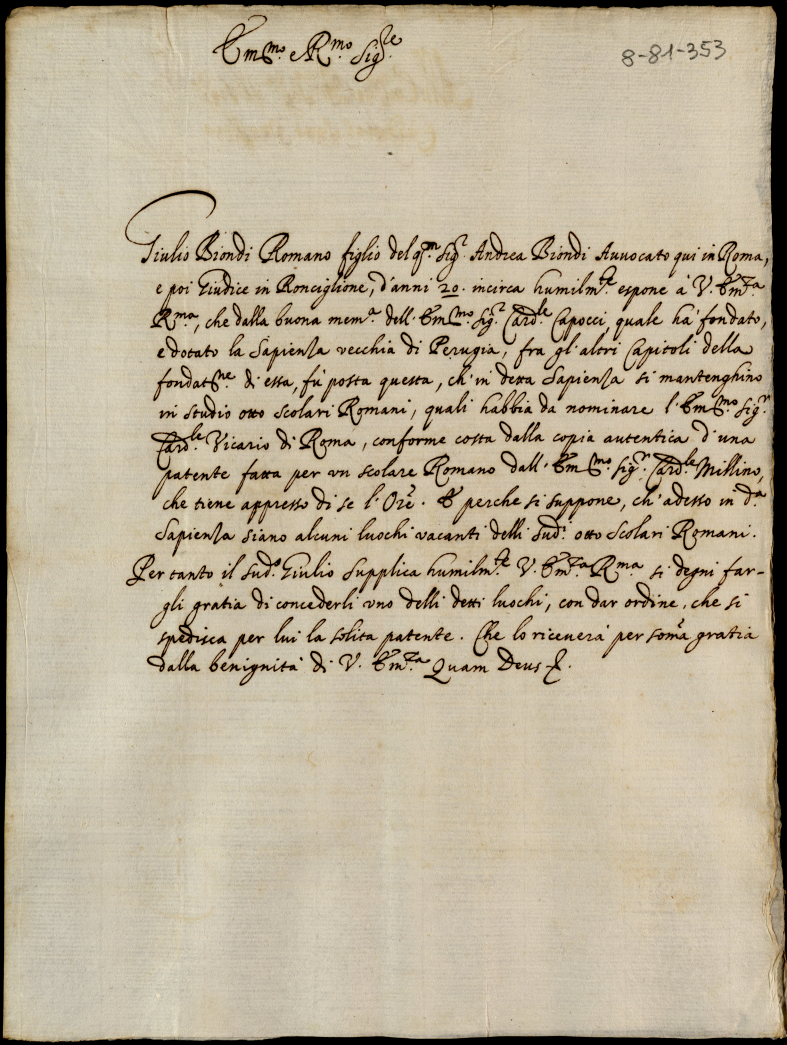 Em.mo e R.mo Sig.re
8-81-353
Giulio Biondi Romano figlio del q.m Sig.r Andrea Biondi Avvocato qui in Roma,
e poi Giudice in Ronciglione, d'anni 20. incirca humilm.te espone à V. Em.za
R.ma, che dalla buona mem.a dell'Em.mo Sig.r Card.le Capocci, quale hà fondato,
e dotato la Sapienza vecchia di Perugia, fra gl'altri Capitoli della
fondat.ne di essa, fù posta questa, ch'in detta Sapienza si mantenghino
in studio otto Scolari Romani, quali habbia da nominare l'Em.mo Sig.r
Card.le Vicario di Roma, conforme costa dalla copia autentica d'una
patente fatta per un scolare Romano dall'Em.mo Sig.r Card.le Millino,
che tiene appresso di se l'Ore. E perche si suppone, ch'adesso in d.a
Sapienza siano alcuni luochi vacanti delli sud.i otto Scolari Romani.
Per tanto il sud.o Giulio supplica humilm.te V. Em.za R.ma si degni far-
gli gratia di concederli uno delli detti luochi, con dar ordine, che si
spedisca per lui la solita patente. Che lo riceverà per soma gratia
dalla benignità di V. Em.za Quam Deus &.